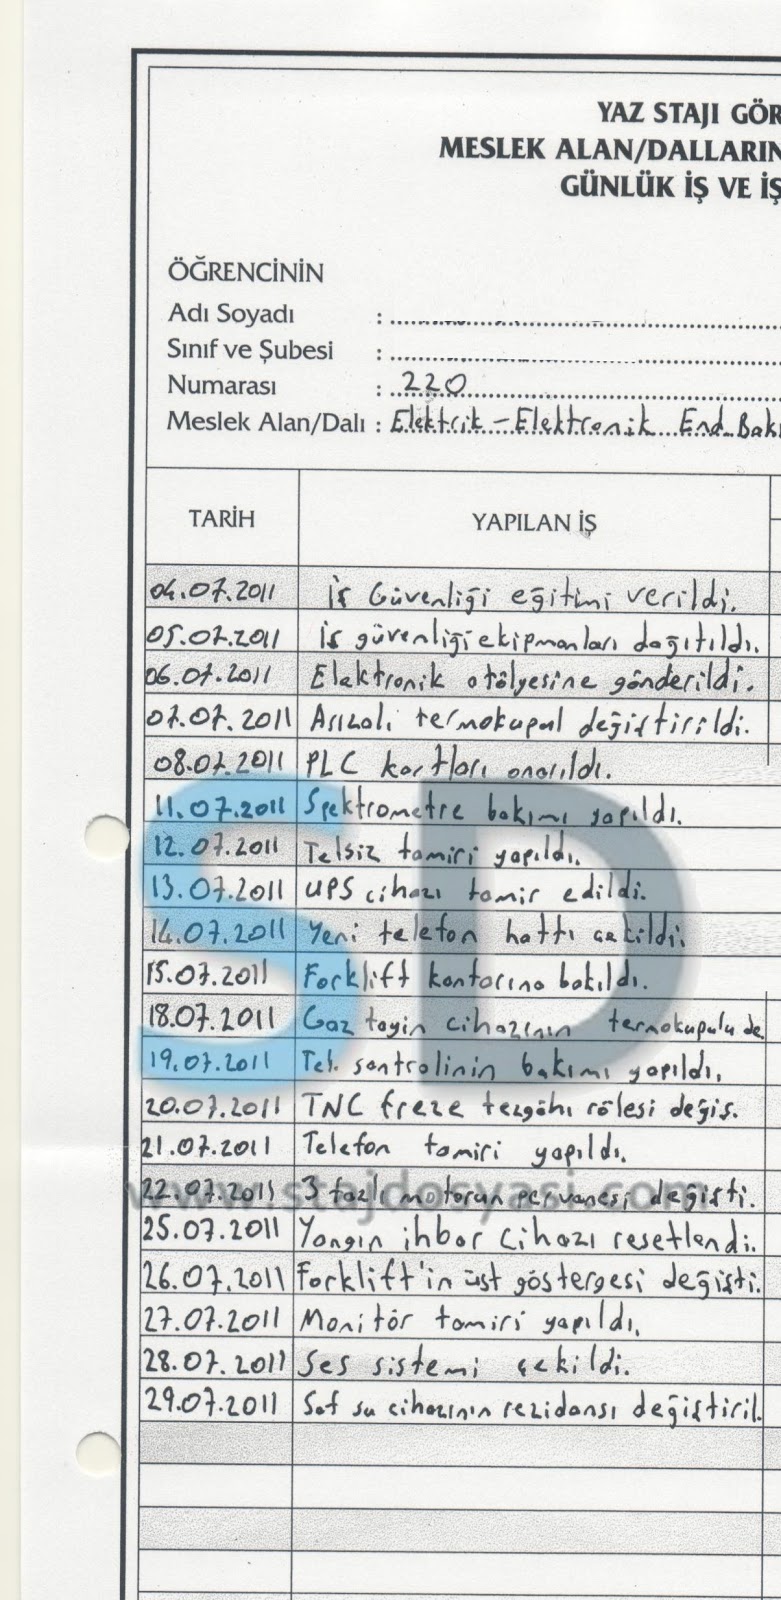 YAZ STAJI GÖR
MESLEK ALAN/DALLARIN
GÜNLÜK İŞ VE İŞ
ÖĞRENCİNİN
Adı Soyadı :
Sınıf ve Şubesi :
Numarası : 220
Meslek Alan/Dalı : Elektrik-Elektronik End. Bakı
TARİH YAPILAN İŞ
04.07.2011 İş Güvenliği eğitimi verildi.
05.07.2011 İş güvenliği ekipmanları dağıtıldı.
06.07.2011 Elektronik otölyesine gönderildi.
07.07.2011 Arızalı termokupul değiştirildi.
08.07.2011 PLC kartları onarıldı.
11.07.2011 Spektrometre bakımı yapıldı.
12.07.2011 Telsiz tamiri yapıldı.
13.07.2011 UPS cihazı tamir edildi.
14.07.2011 Yeni telefon hattı çekildi.
15.07.2011 Forklift kontarına bakıldı.
18.07.2011 Gaz tayin cihazının termokupulu de
19.07.2011 Tel. santralinin bakımı yapıldı.
20.07.2011 TNC freze tezgâhı rölesi değiş.
21.07.2011 Telefon tamiri yapıldı.
22.07.2011 3 fazlı motorun pervanesi değişti.
www.stajdosyasi.com
25.07.2011 Yangın ihbar cihazı resetlendi.
26.07.2011 Forklift'in üst göstergesi değişti.
27.07.2011 Monitör tamiri yapıldı.
28.07.2011 Ses sistemi çekildi.
29.07.2011 Saf su cihazının rezidansı değiştiril.
SD